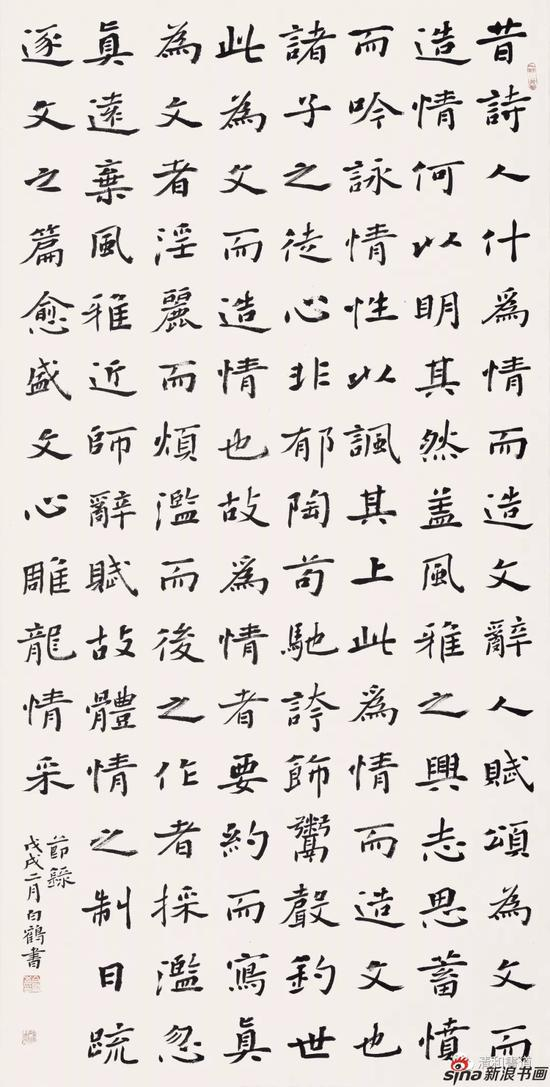 昔詩人什爲情而造文辭人賦頌為文而
造情何以明其然盖風雅之興志思蓄憤
而吟詠情性以諷其上此為情而造文也
諸子之徒心非郁陶苟馳誇飾鬻聲釣世
此為文而造情也故爲情者要約而寫真
為文者淫麗而煩濫而後之作者採濫忽
眞遠棄風雅近師辭賦故體情之制日疏
逐文之篇愈盛文心雕龍情采
節錄
戊戌二月白鶴書
清和書道
sina新浪书画